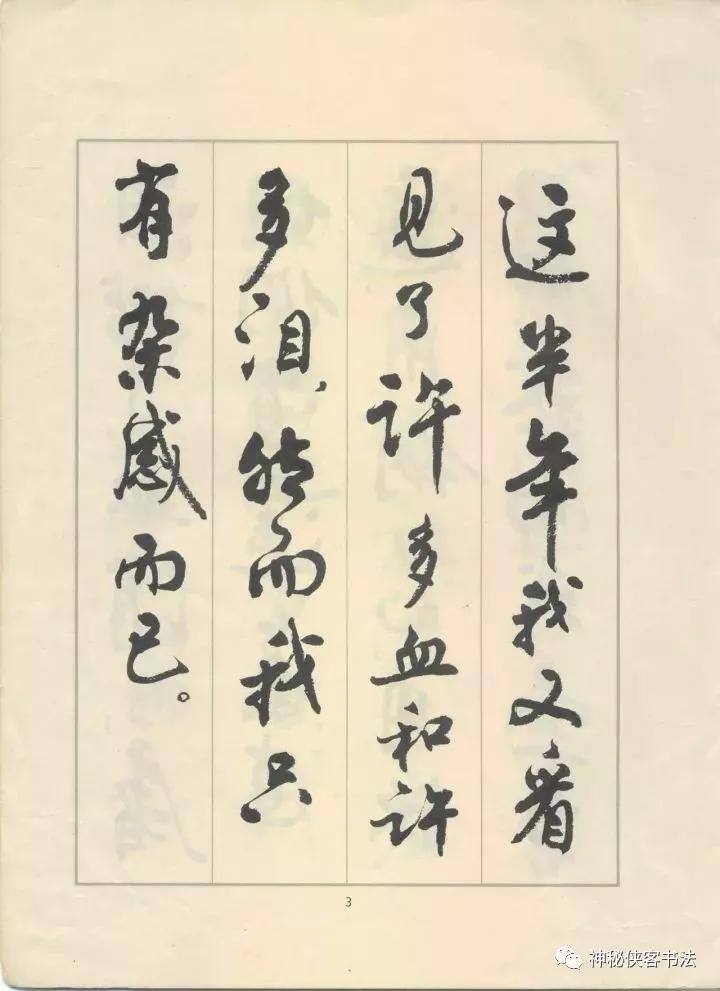 这半年我又看
见了许多血和许
多泪、然而我只
有杂感而已。
3
神秘侠客书法